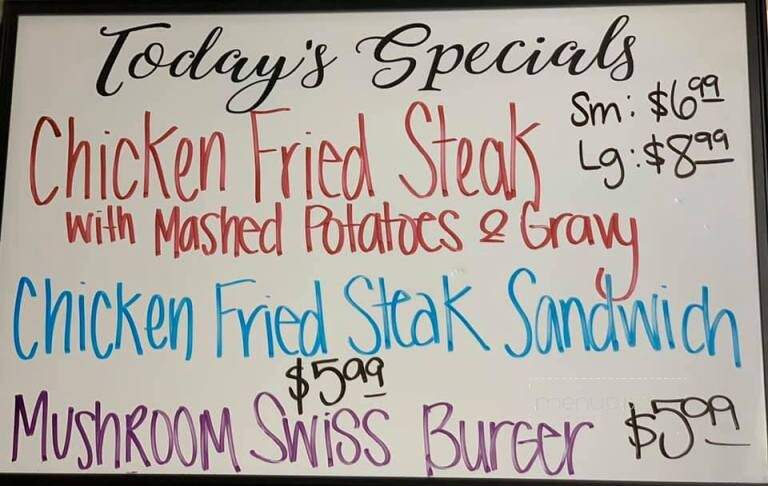 Today's Specials
Chicken Fried Steak Sm: $6.99
Lg: $8.99
with Mashed Potatoes & Gravy
Chicken Fried Steak Sandwich
$5.99
Mushroom Swiss Burger $5.99